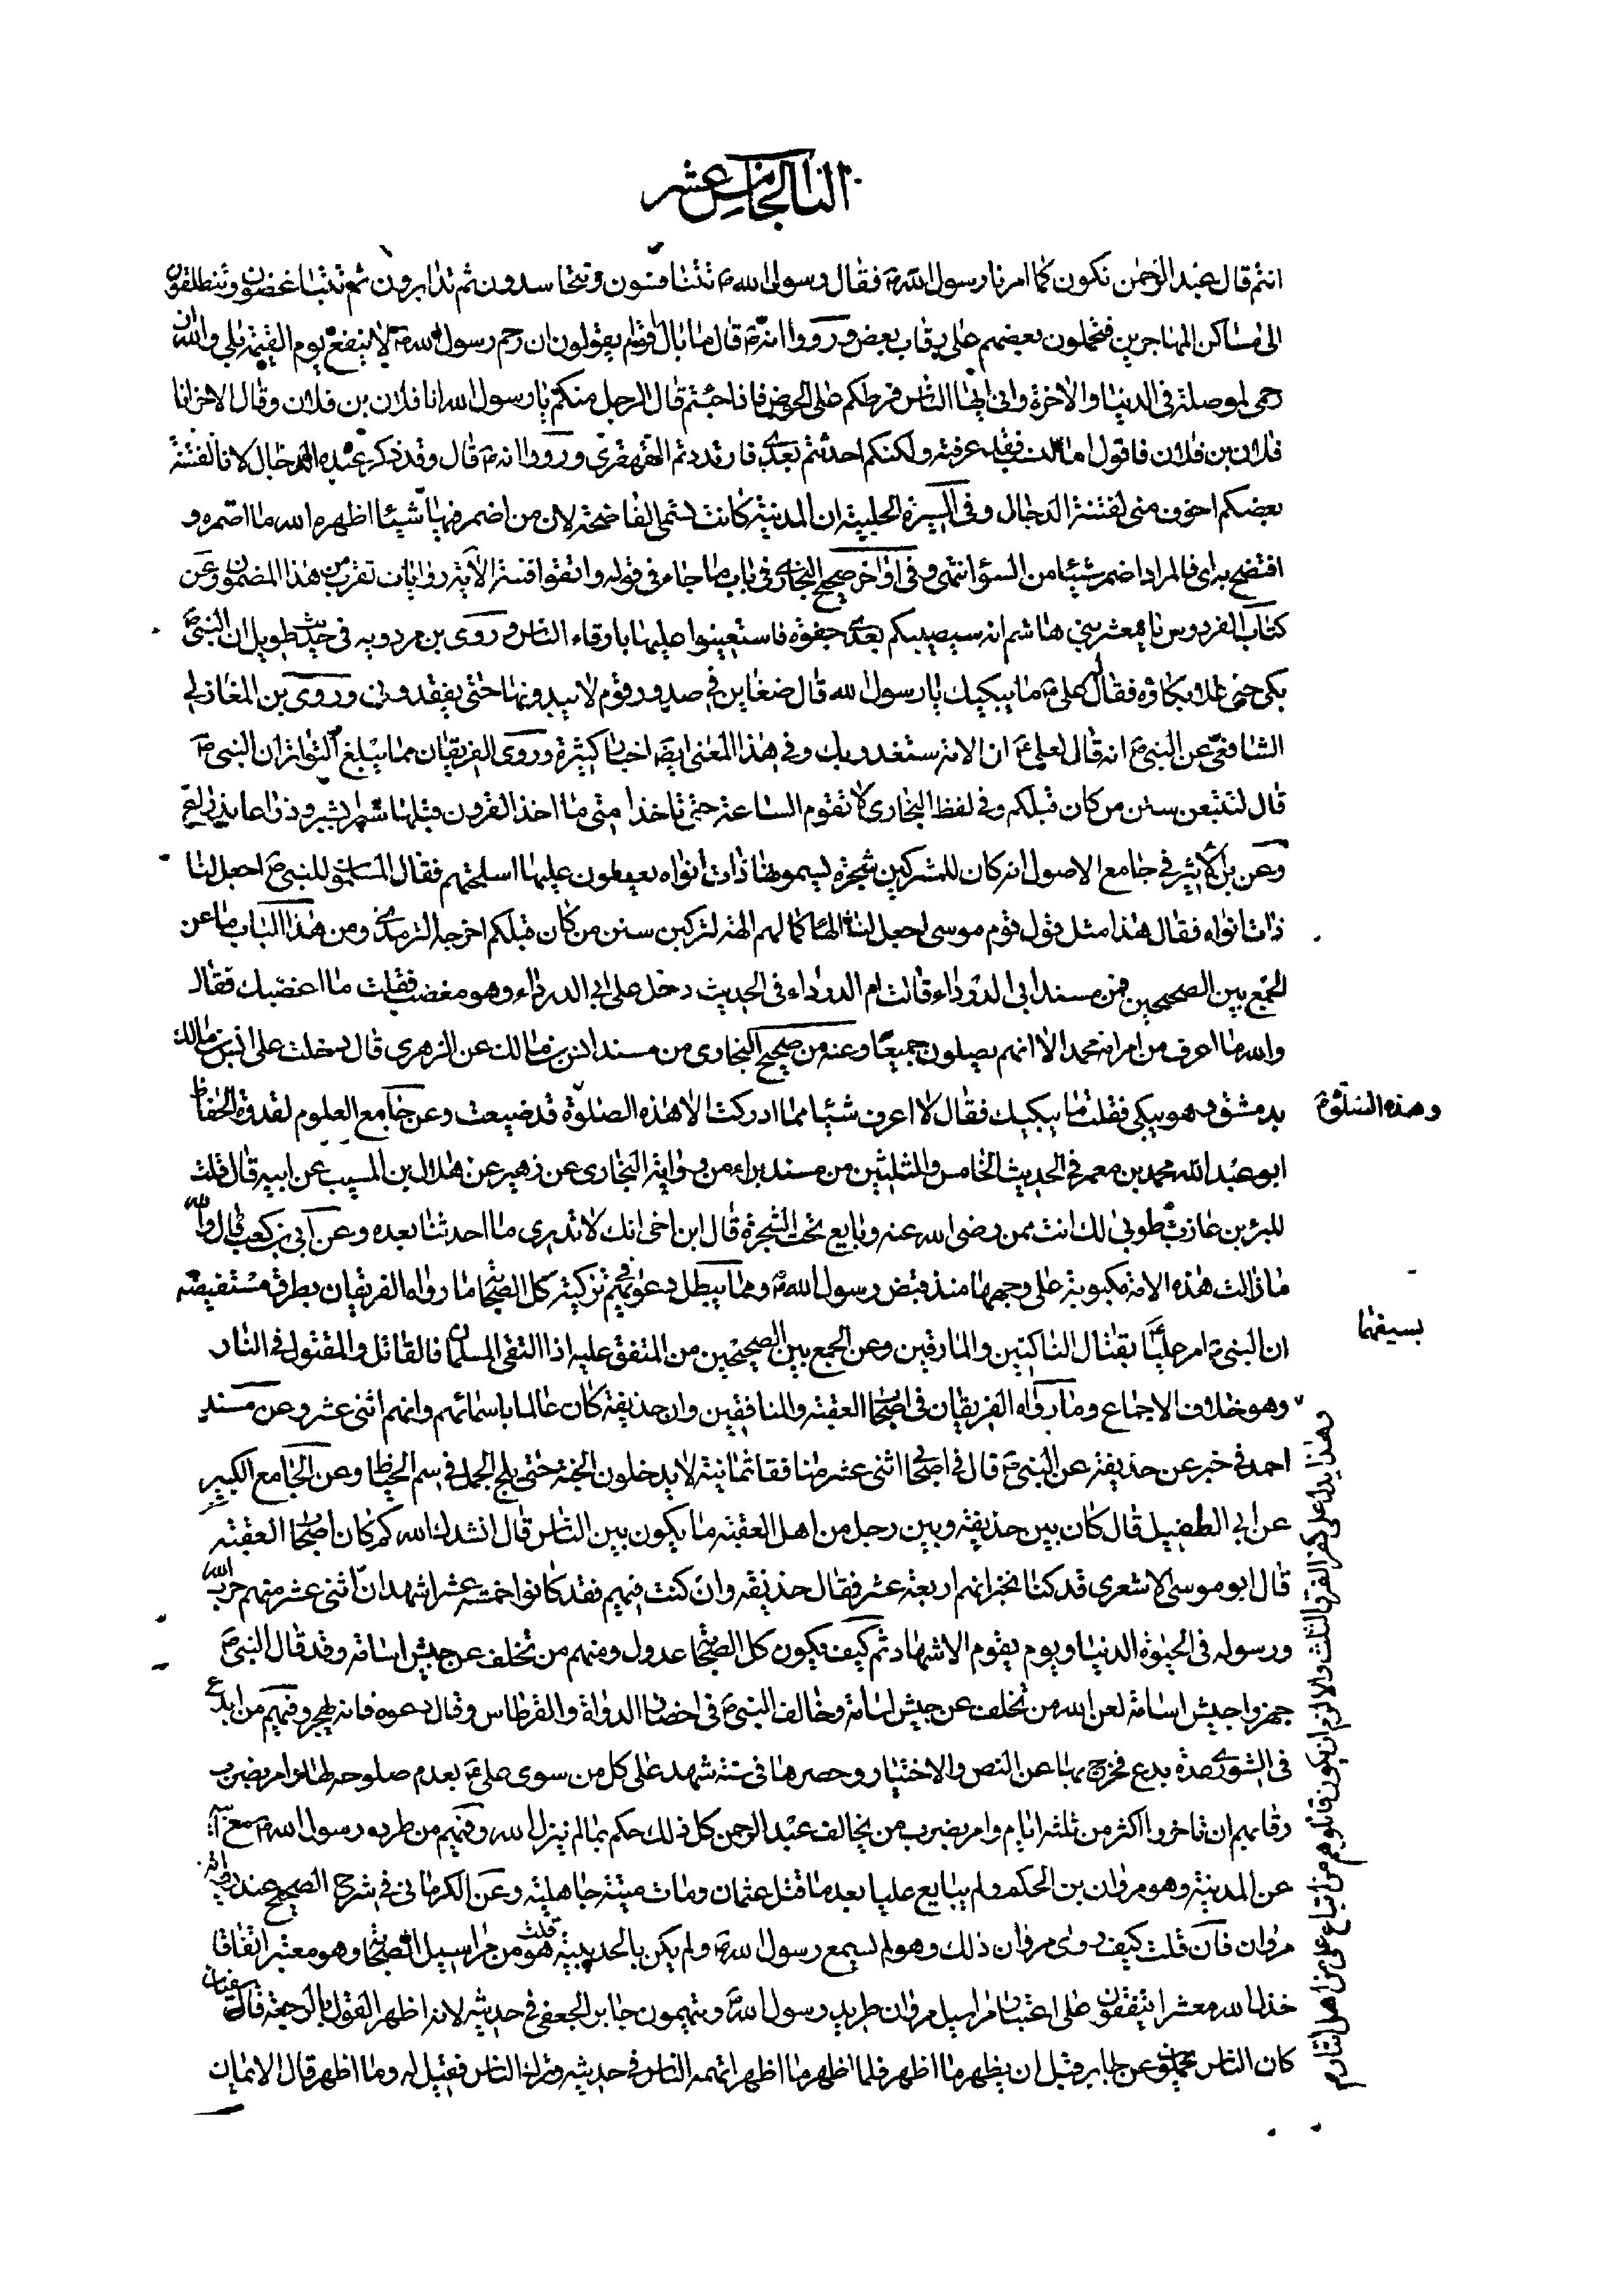 الباب الخامس عشر
انتم قال عبد الرحمن نكون كما امرنا رسول الله ص فقال رسول الله ص تتنافسون وتتحاسدون ثم تتدابرون ثم تتباغضون وتنطلقون
الى مساكن المهاجرين فتحملون بعضهم على رقاب بعض ورووا انه ص قال ما بال اقوام يقولون ان رحم رسول الله ص لا ينفع يوم القيمة بلى والله ان
رحمى لموصلة فى الدنيا والاخرة وانى ايها الناس فرطكم على الحوض فاذا جئتم قال الرجل منكم يا رسول الله انا فلان بن فلان وقال الاخر انا
فلان بن فلان فاقول اما النسب فقد عرفته ولكنكم احدثتم بعدى فارتددتم القهقرى ورووا انه ص قال وقد ذكر عنده الدجال لانا لفتنة
بعضكم اخوف منى لفتنة الدجال وفى السيرة الحلبية ان المدينة كانت تسمى الفاضحة لان من اضمر فيها شيئا اظهر الله ما اضمره و
افتضح به اى فالمراد اضمر شيئا من السؤ انتهى وفى اواخر صحيح البخارى فى باب ما جاء فى قوله واتقوا فتنة الاية روايات تقرب من هذا المضمون وعن
كتاب الفردوس يا معشر بنى هاشم انه سيصيبكم بعدى جفوة فاستعينوا عليها بارقاء الناس وروى بن مردويه فى حديث طويل ان النبى ص
بكى حتى علا بكاؤه فقال له على ع ما يبكيك يا رسول الله قال ضغاين فى صدور قوم لا يبدونها حتى يفقدونى وروى بن المغازلى
الشافعى عن النبى ص انه قال لعلى ع ان الامة ستغدر بك وفى هذا المعنى ايضا اخبار كثيرة وروى الفريقان مما يبلغ التواتر ان النبى ص
قال لتتبعن سنن من كان قبلكم وفى لفظ البخارى لا تقوم الساعة حتى تاخذ امتى ما اخذ القرون قبلها شبرا بشبر وذراعا بذراع
وعن بن الاثير فى جامع الاصول انه كان للمشركين شجرة يسمونها ذات انواط يعلقون عليها اسلحتهم فقال المسلمون للنبى ص اجعل لنا
ذات انواط فقال هذا مثل قول قوم موسى اجعل لنا الها كما لهم الهة لتركبن سنن من كان قبلكم اخرجه الترمذى ومن هذا الباب ما عن
الجمع بين الصحيحين فمن مسند ابى الدرداء قالت ام الدرداء فى الحديث دخل على ابو الدرداء وهو مغضب فقلت ما اغضبك فقال
والله ما اعرف من امر امة محمد الا انهم يصلون جميعا وعنه من صحيح البخارى من مسند انس بن مالك عن الزهرى قال دخلت على انس بن مالك
بدمشق وهو يبكى فقلت ما يبكيك فقال لا اعرف شيئا مما ادركت الا هذه الصلوة قد ضيعت وعن جامع العلوم لقدوة الحفاظ
وهذه الصلوة
ابو عبد الله محمد بن معمر فى الحديث الخامس والثلثين من مسند براء من رواية البخارى عن زهير عن هلال بن المسيب عن ابيه قال قلت
للبرء بن عازب طوبى لك انت ممن رضى الله عنه وبايع تحت الشجرة قال ابن اخى انك لا تدرى ما احدثنا بعده وعن ابى بن كعب قال والله
ما زالت هذه الامة مكبوبة على وجهها منذ قبض رسول الله ص ومما يبطل دعويهم تزكية كل الصحابة ما رواه الفريقان بطرق مستفيضة
ان النبى ص امر عليا بقتال الناكثين والمارقين وعن الجمع بين الصحيحين من المتفق عليه اذا التقى المسلمان فالقاتل والمقتول فى النار
بسيفهما
وهو خلاف الاجماع وما رواه الفريقان فى اصحاب العقبة والمنافقين وان حذيفة كان عالما باسمائهم وانهم اثنى عشر وعن مسند
احمد فى خبر عن حذيفة عن النبى ص قال فى اصحابى اثنى عشر منافقا ثمانية لا يدخلون الجنة حتى يلج الجمل فى سم الخياط وعن الجامع الكبير
عن ابى الطفيل قال كان بين حذيفة وبين رجل من اهل العقبة ما يكون بين الناس قال انشدك الله كم كان اصحاب العقبة
قال ابو موسى الاشعرى قد كنا نخبر انهم اربعة عشر فقال حذيفة وان كنت فيهم فقد كانوا خمسة عشر اشهد ان اثنى عشر منهم حرب الله
ورسوله فى الحيوة الدنيا ويوم يقوم الاشهاد ثم كيف يكون كل الصحابة عدول ومنهم من تخلف عن جيش اسامة وقد قال النبى ص
جهزوا جيش اسامة لعن الله من تخلف عن جيش اسامة وخالف النبى ص فى احضار الدواة والقرطاس وقال دعوه فانه ليهجر وفيهم من ابدع
فى الشورى عدة بدع فخرج بها عن النص والاختيار وحصرها فى ستة شهد على كل من سوى على ع بعدم صلوحه لها وامر بضرب
رقابهم ان تاخروا اكثر من ثلثة ايام وامر بضرب من يخالف عبد الرحمن كل ذلك حكم بما لم ينزل الله وفيهم من طرده رسول الله ص مع ابيه
عن المدينة وهو مروان بن الحكم ولم يبايع عليا بعد ما قتل عثمان ومات ميتة جاهلية وعن الكرمانى فى شرح الصحيح عند رواية
مروان فان قلت كيف روى مروان ذلك وهو لم يسمع رسول الله ص ولم يكن بالحديبية قلت هو من مراسيل الصحابة وهو معتبر اتفاقا
خذل الله معشرا يتفقون على اعتبار مراسيل مروان طريد رسول الله ص ويتهمون جابر الجعفى فى حديثه لانه اظهر القول بالرجعة قال سفيان
كان الناس يحملون عن جابر قبل ان يظهر ما اظهر فلما اظهر ما اظهر اتهمه الناس فى حديثه وتركه الناس فقيل له وما اظهر قال الايمان
وهذا يدل على كفر الفرق الثلث والا لزم ان يكون قاتلوهم من اتباع على من اهل النار